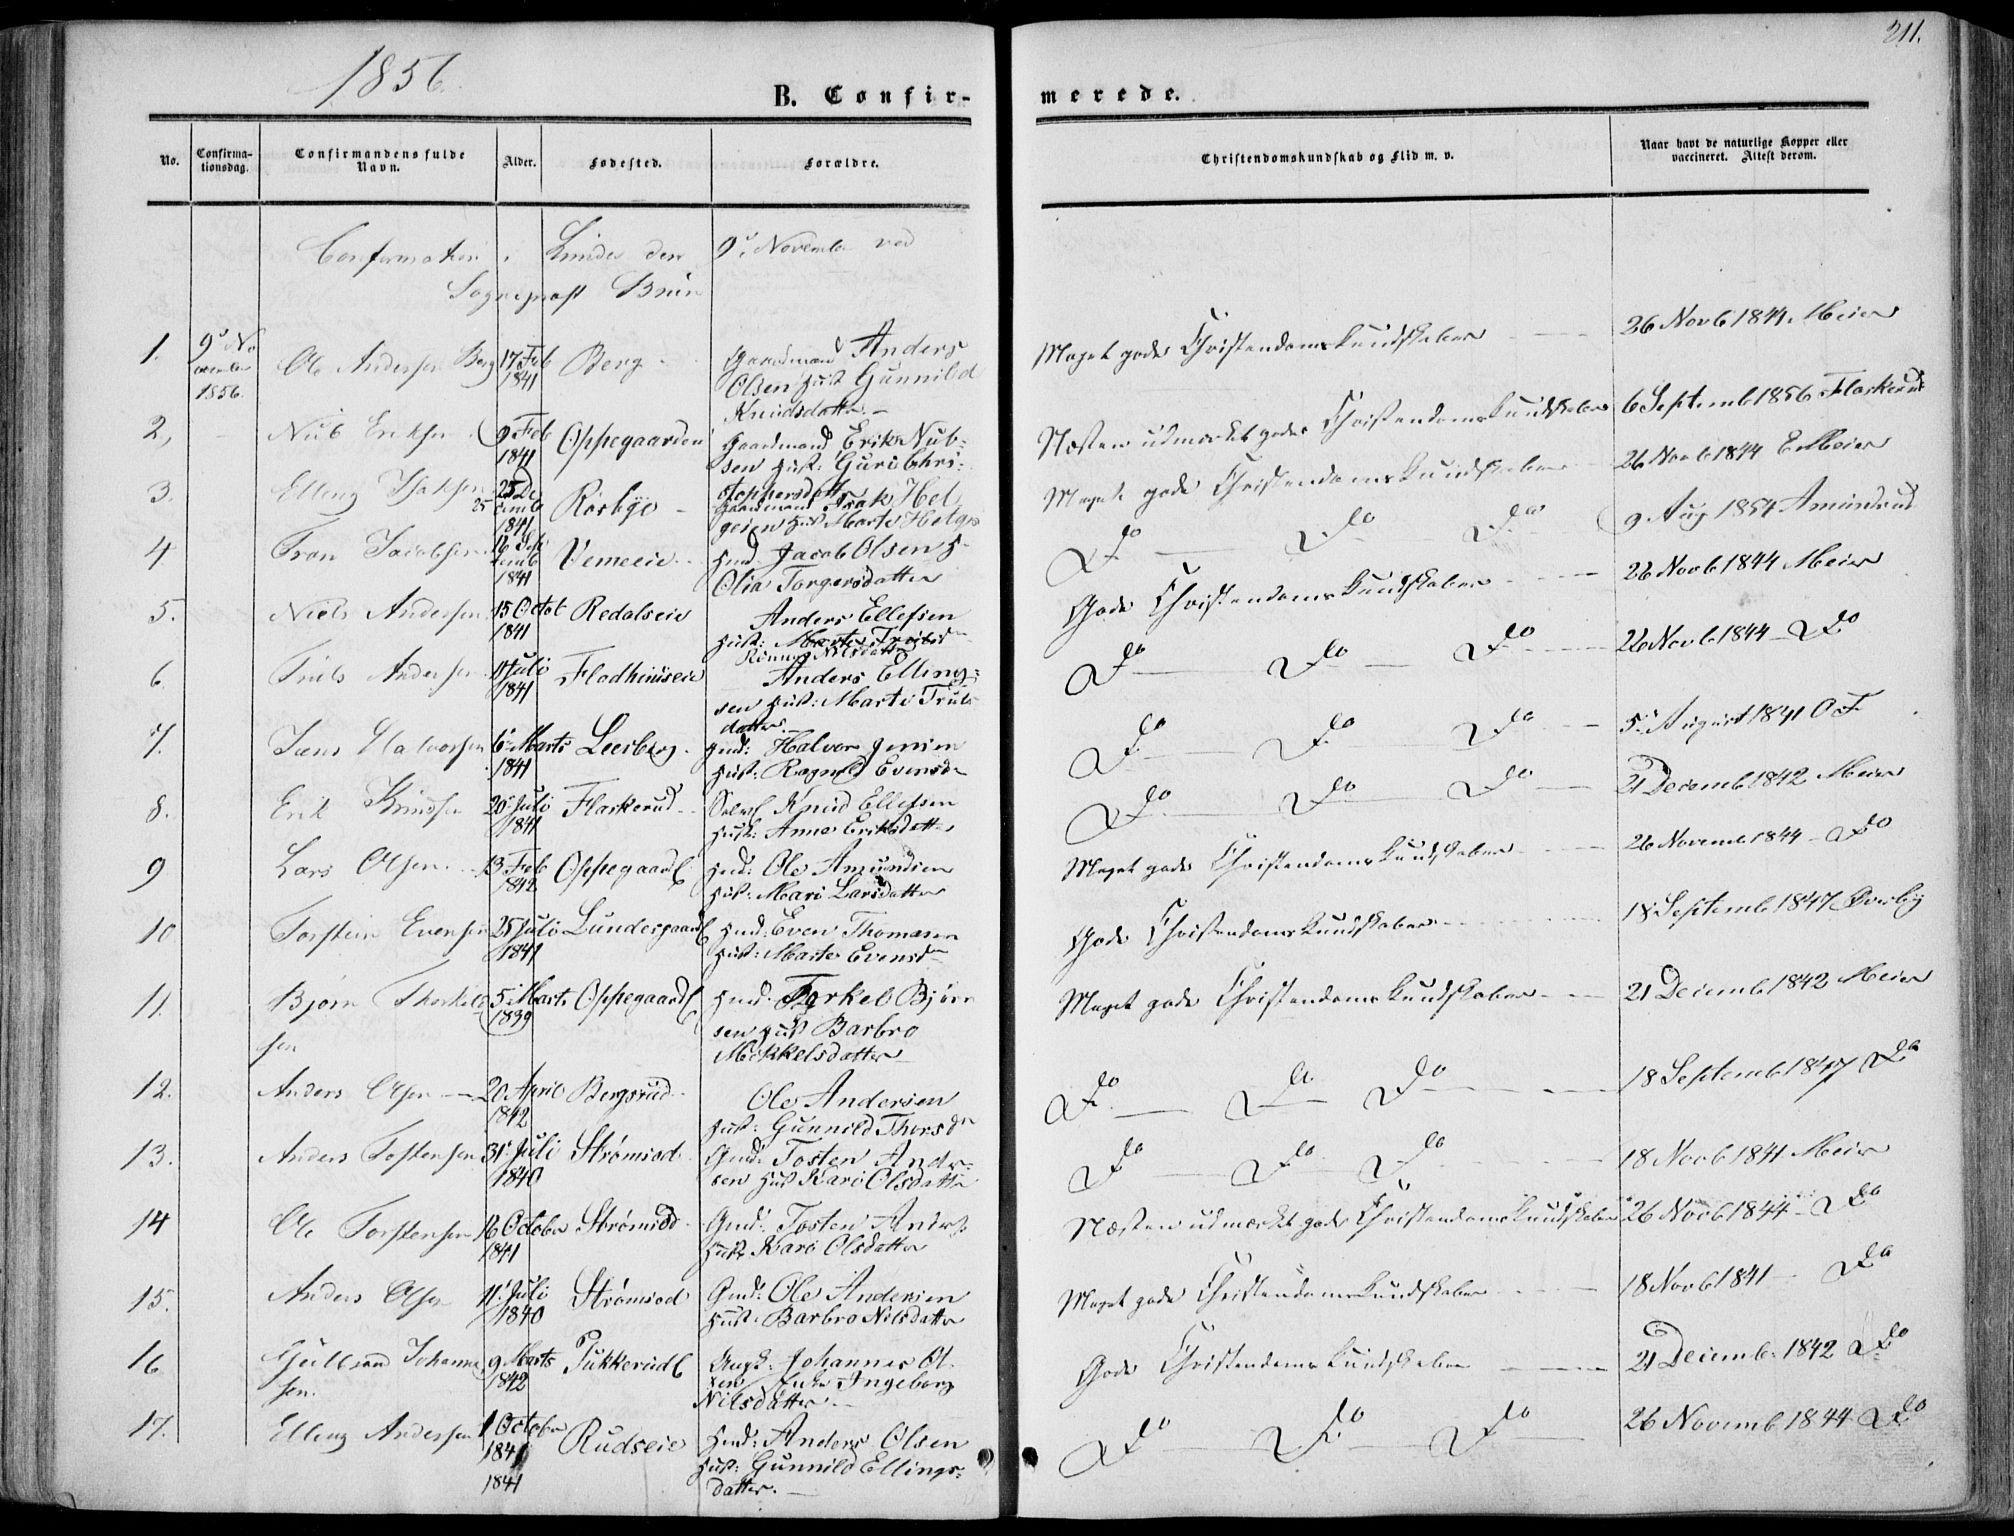 211.
1856.
B. Confir-
merede.
No.
Confirma-
tionsdag.
Confirmandens fulde
Navn.
Alder.
Fødested.
Forældre.
Christendomskundskab og Flid m. v.
Naar havt de naturlige Kopper eller
vaccineret. Attest derom.
Confirmation i Limdes den 9de November ved
Sogneprest Bruun
1. 9de No
vember
1856.
Ole Andersen Berg 17 Feb 1841 Berg
Gaardmand Anders
Olsen Hust Gunnild
Knudsdatter
Meget gode Christendomskundskaber 26 Novb 1844 Meier
2, Nub Eriksen 9 Feb 1841 Oppegaarden
Gaardmand Erik Nub-
sen Hust: Guri Chri-
stophersdatter
Næsten udmærket gode Christendomskundskaber 6 Septemb 1856 Flaskerud
3. Elling Isaksen 25 De
cemb
1841
Gaardmand Isak Hel
geien Hust Marte Helges
Meget gode Christendomskundskaber 26 Novb 1844 E Meier
4 Iacobsen 16 Sep
temb
1841
Vemeeie
Hmd Jacob Olsen H
Olia Torgersdatter
Do Do Do 9 Aug 1854 Amundrud
5. Niels Andersen 15 Octob 1841 Redalseie
Anders Ellefsen
Hust:
Nilsdatter
Gode Christendomskundskaber 26 Novb 1844 Meier
6 Truls Andersen 11 Juli 1841 Flodhuuseie
Anders Elling-
sen Hust: Marte Truls
datter
Do Do Do 26 Novb 1844 Do
7. Jens Halvorsen 6 Marts 1841 Leerberg
Gmd: Halvor Jensen
Hust: Ragnild Evensd
Do Do Do 5 August 1841 O.F.
8. Erik Knudsen 20 Juli 1841 Flaskerud
Knud Ellefsen
Hust: Anne Eriksdatter
Do Do Do 21 Decemb 1842 Meier
9 Lars Olsen 13 Feb 1842 Oppegaard
Hmd: Ole Amundsen
Hust: Mari Larsdatter
Meget gode Christendomskundskaber 26 Novemb 1844 Do
10 Torstein Evensen 25 Julo 1841 Lundesgaard
Hmd: Even Thomasen
Hust: Marte Evensd
Gode Christendomskundskaber 18 Septemb 1847 Overby
11. Bjørn Thorkels
sen
5 Marts 1839 Oppegaard
Hmd: Torkel Bjørn
sen Hust Barbro
Mikkelsdatter
Meget gode Christendomskundskaber 21 Decemb 1842 Meier
12. Anders Olsen 20 April 1842 Bergsrud
Ole Andersen
Hust: Gunnild Thorsd
Do Do Do 18 Septemb 1847 Do
13. Anders Tostensen 31 Juli 1840 Strømsod
Gmd: Tosten Ander-
sen Hust Kari Olsdatter
Do Do Do 18 Novb 1841 Meier
14 Ole Torstensen 16 October 1841 Strømsod
Gmd: Tosten Anders
Hust: Kari Olsdatter
Næsten udmærket gode Christendomskundskaber 26 Novb 1844 Do
15. Anders Olsen 11 Juli 1840 Strømsod
Gmd: Ole Andersen
Hust: Barbro Nilsdatter
Meget gode Christendomskundskaber 18 Novb 1841 Do
16 Gulbrand Johanne
sen.
9 Marts 1842 Pukkerud
Johannes Ol-
sen Ingeborg
Nilsdatter
Gode Christendomskundskaber 21 Decemb. 1842 Do
17. Elling Andersen 1 October 1841
1841
Rudseie
Hmd: Anders Olsen
Hust: Gunnild Ellings-
datter.
Do Do Do 26 Novemb 1844 Do